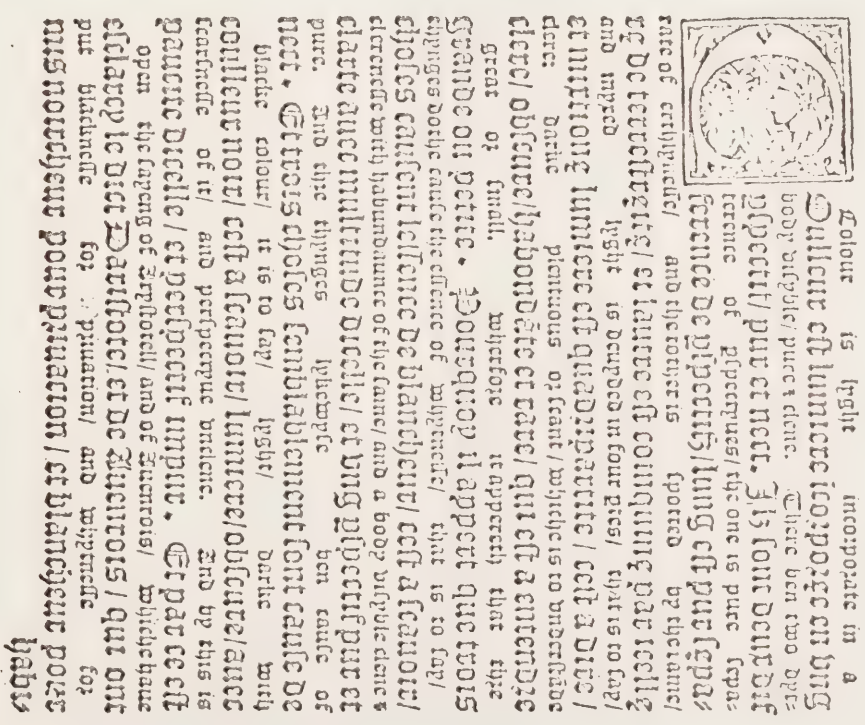 Colour is lyght incorporate in a
Culleur est lumiere icorporée en ung
body visyble/ pure & clene There ben two dyf
dispectif/ pur et nect. Ilz sont deux dif
ference of dispectyues/the one is pure sepa
ference de dispectifz/lung est pur separ
rate of erthlynesse/ and the other is spotted
ré de terrestreité/ et lautre est
same by the lyght is deuyded in four partes/ that is to say/ and
et
plentuous or scant/ whiche is to understande
/ cest a dire/
clere/ darke
clere/ obscure/habondāte et rare/ qui est a entendre
great or small. wherfore it appereth that thre
Grande ou petite. Pourquoy il appert que trois
thynges do the cause the essence of whytnesse/ that is to say/
choses causent lessence de blancheur/ cest a scauoir/
clerenesse with habundaunce of the same/ and a body visyble clene &
clarté auec multitude dicelle/ et ung dispectif pur et
pure. And thre thynges lykewyse ben cause of
nect. Et trois choses semblablement sont cause de
blacke colour/ it is to say/ lyght/ darke with
couleur noir/ cest a scauoir/ lumiere/obscure/auec
scarsnesse of it and perspectyue unclene. And by this is
paucité dicelle/ et perspectif impur. Et par ce est
open the sayeng of Arystotell/ and of Auenrois/ whiche haue
esclarcy le dict Daristote/ et de Auenrois/ qui ont
put blacknesse for priuation/ and whytnesse for
mis noircheur pour priuation/ et blancheur pour
habit